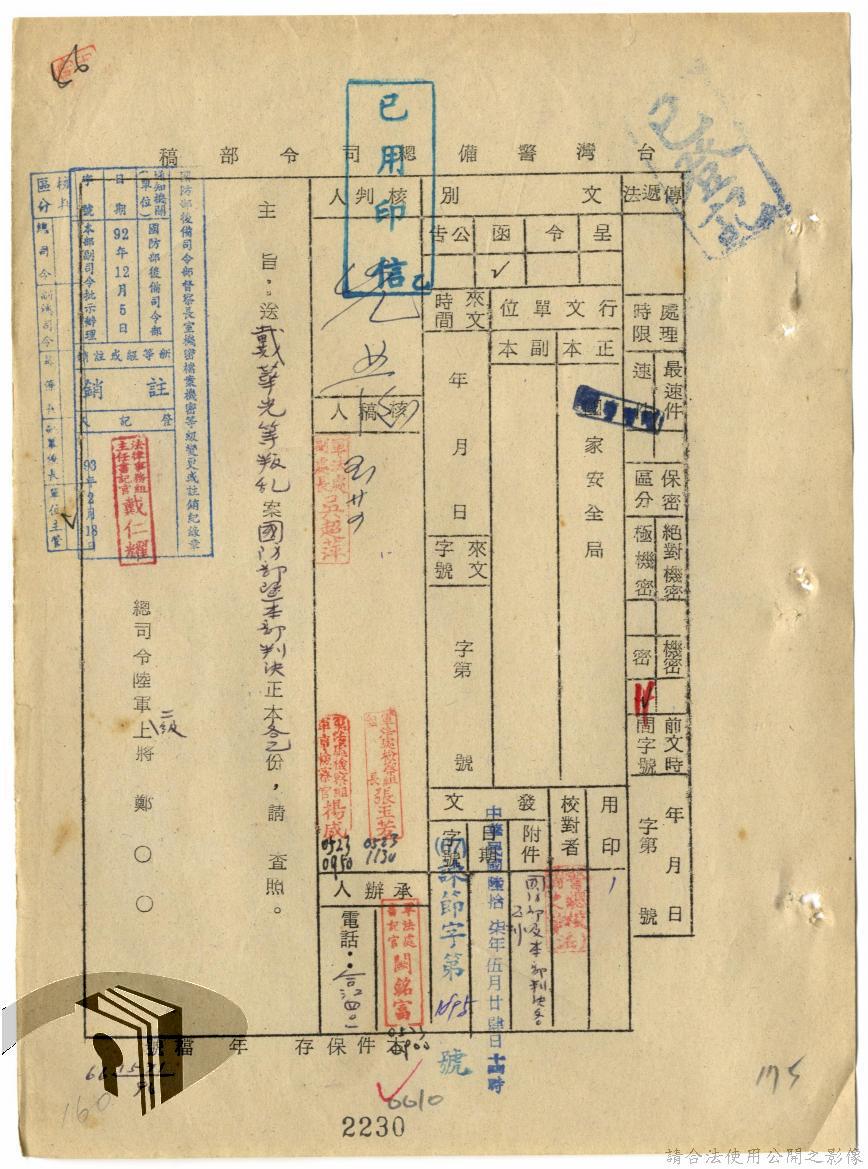 台灣警備總司令部稿
已用印信
傳遞法
處理時限
最速件
速件
保密區分
絕對機密
極機密
機密
密
前文時間字號
年月日
字第 號
文別
呈
令
函
公告
✓
行文單位
正本
副本
國家安全局
來文時間
年 月 日
來文字號
字第 號
用印
校對者
發文
附件
國防部及本部判決各
日期
中華民國陸拾柒年伍月廿肆日十一時
字號
(67)諫節字第1895號
核判人
核稿人
軍法處副處長吳超萍
軍法處檢察組組長張玉芳
0523
1130
軍法處檢察組軍事檢察官楊威
0523
0950
承辦人
軍法處書記官闕銘富
0523
0900
電話:
主旨:送戴華光等叛亂案國防部暨本部判決正本各乙份,請 查照。
總司令陸軍二級上將 鄭○○
國防部後備司令部督察長室機密檔案機密等級變更或註銷紀錄章
通知機關(單位)
國防部後備司令部
日期
92年12月5日
字號
本部副司令批示辦理
新等級或註銷
註銷
登記人
法律事務組主任書記官戴仁耀
93年2月18日
區分
總司令
副總司令
單位主管
本件保存 年 檔號
0010
2230
160
175
請合法使用公開之影像